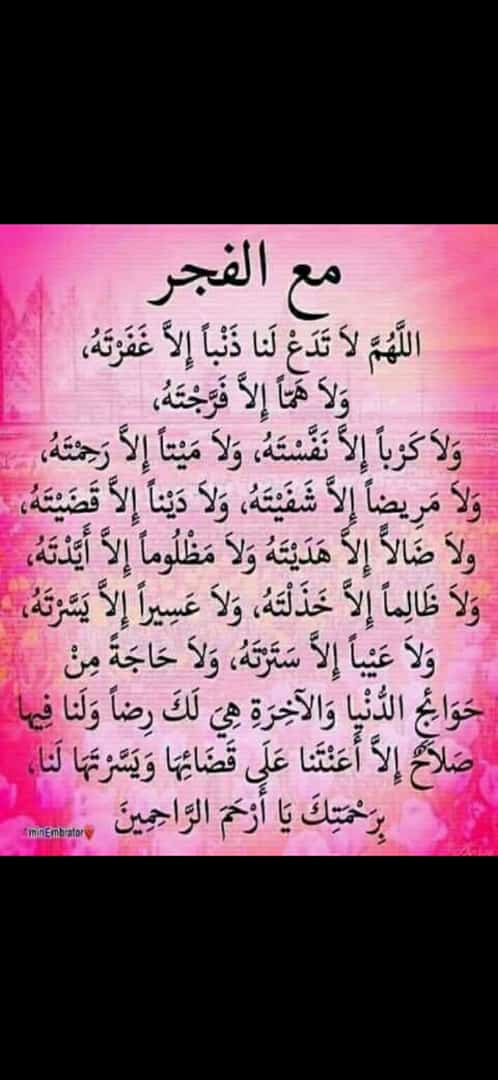 مع الفجر
اللَّهُمَّ لاَ تَدَعْ لَنا ذَنْباً إِلاَّ غَفَرْتَهُ،
وَلاَ هَمّاً إِلاَّ فَرَّجْتَهُ،
وَلاَ كَرْباً إِلاَّ نَفَّسْتَهُ، وَلاَ مَيْتاً إِلاَّ رَحِمْتَهُ،
وَلاَ مَرِيضاً إِلاَّ شَفَيْتَهُ، وَلاَ دَيْناً إِلاَّ قَضَيْتَهُ،
ولاَ ضَالاًّ إِلاَّ هَدَيْتَهُ وَلاَ مَظْلُوماً إِلاَّ أَيَّدْتَهُ،
وَلاَ ظَالِماً إِلاَّ خَذَلْتَهُ، وَلاَ عَسِيراً إِلاَّ يَسَّرْتَهُ،
وَلاَ عَيْباً إِلاَّ سَتَرْتَهُ، وَلاَ حَاجَةً مِنْ
حَوَائِجِ الدُّنْيا وَالآخِرَةِ هِيَ لَكَ رِضاً وَلَنا فِيها
صَلاَحٌ إِلاَّ أَعَنْتَنا عَلَى قَضَائِهَا وَيَسَّرْتَهَا لَنا،
بِرَحْمَتِكَ يَا أَرْحَمَ الرَّاحِمِينَ
AminEmbrator